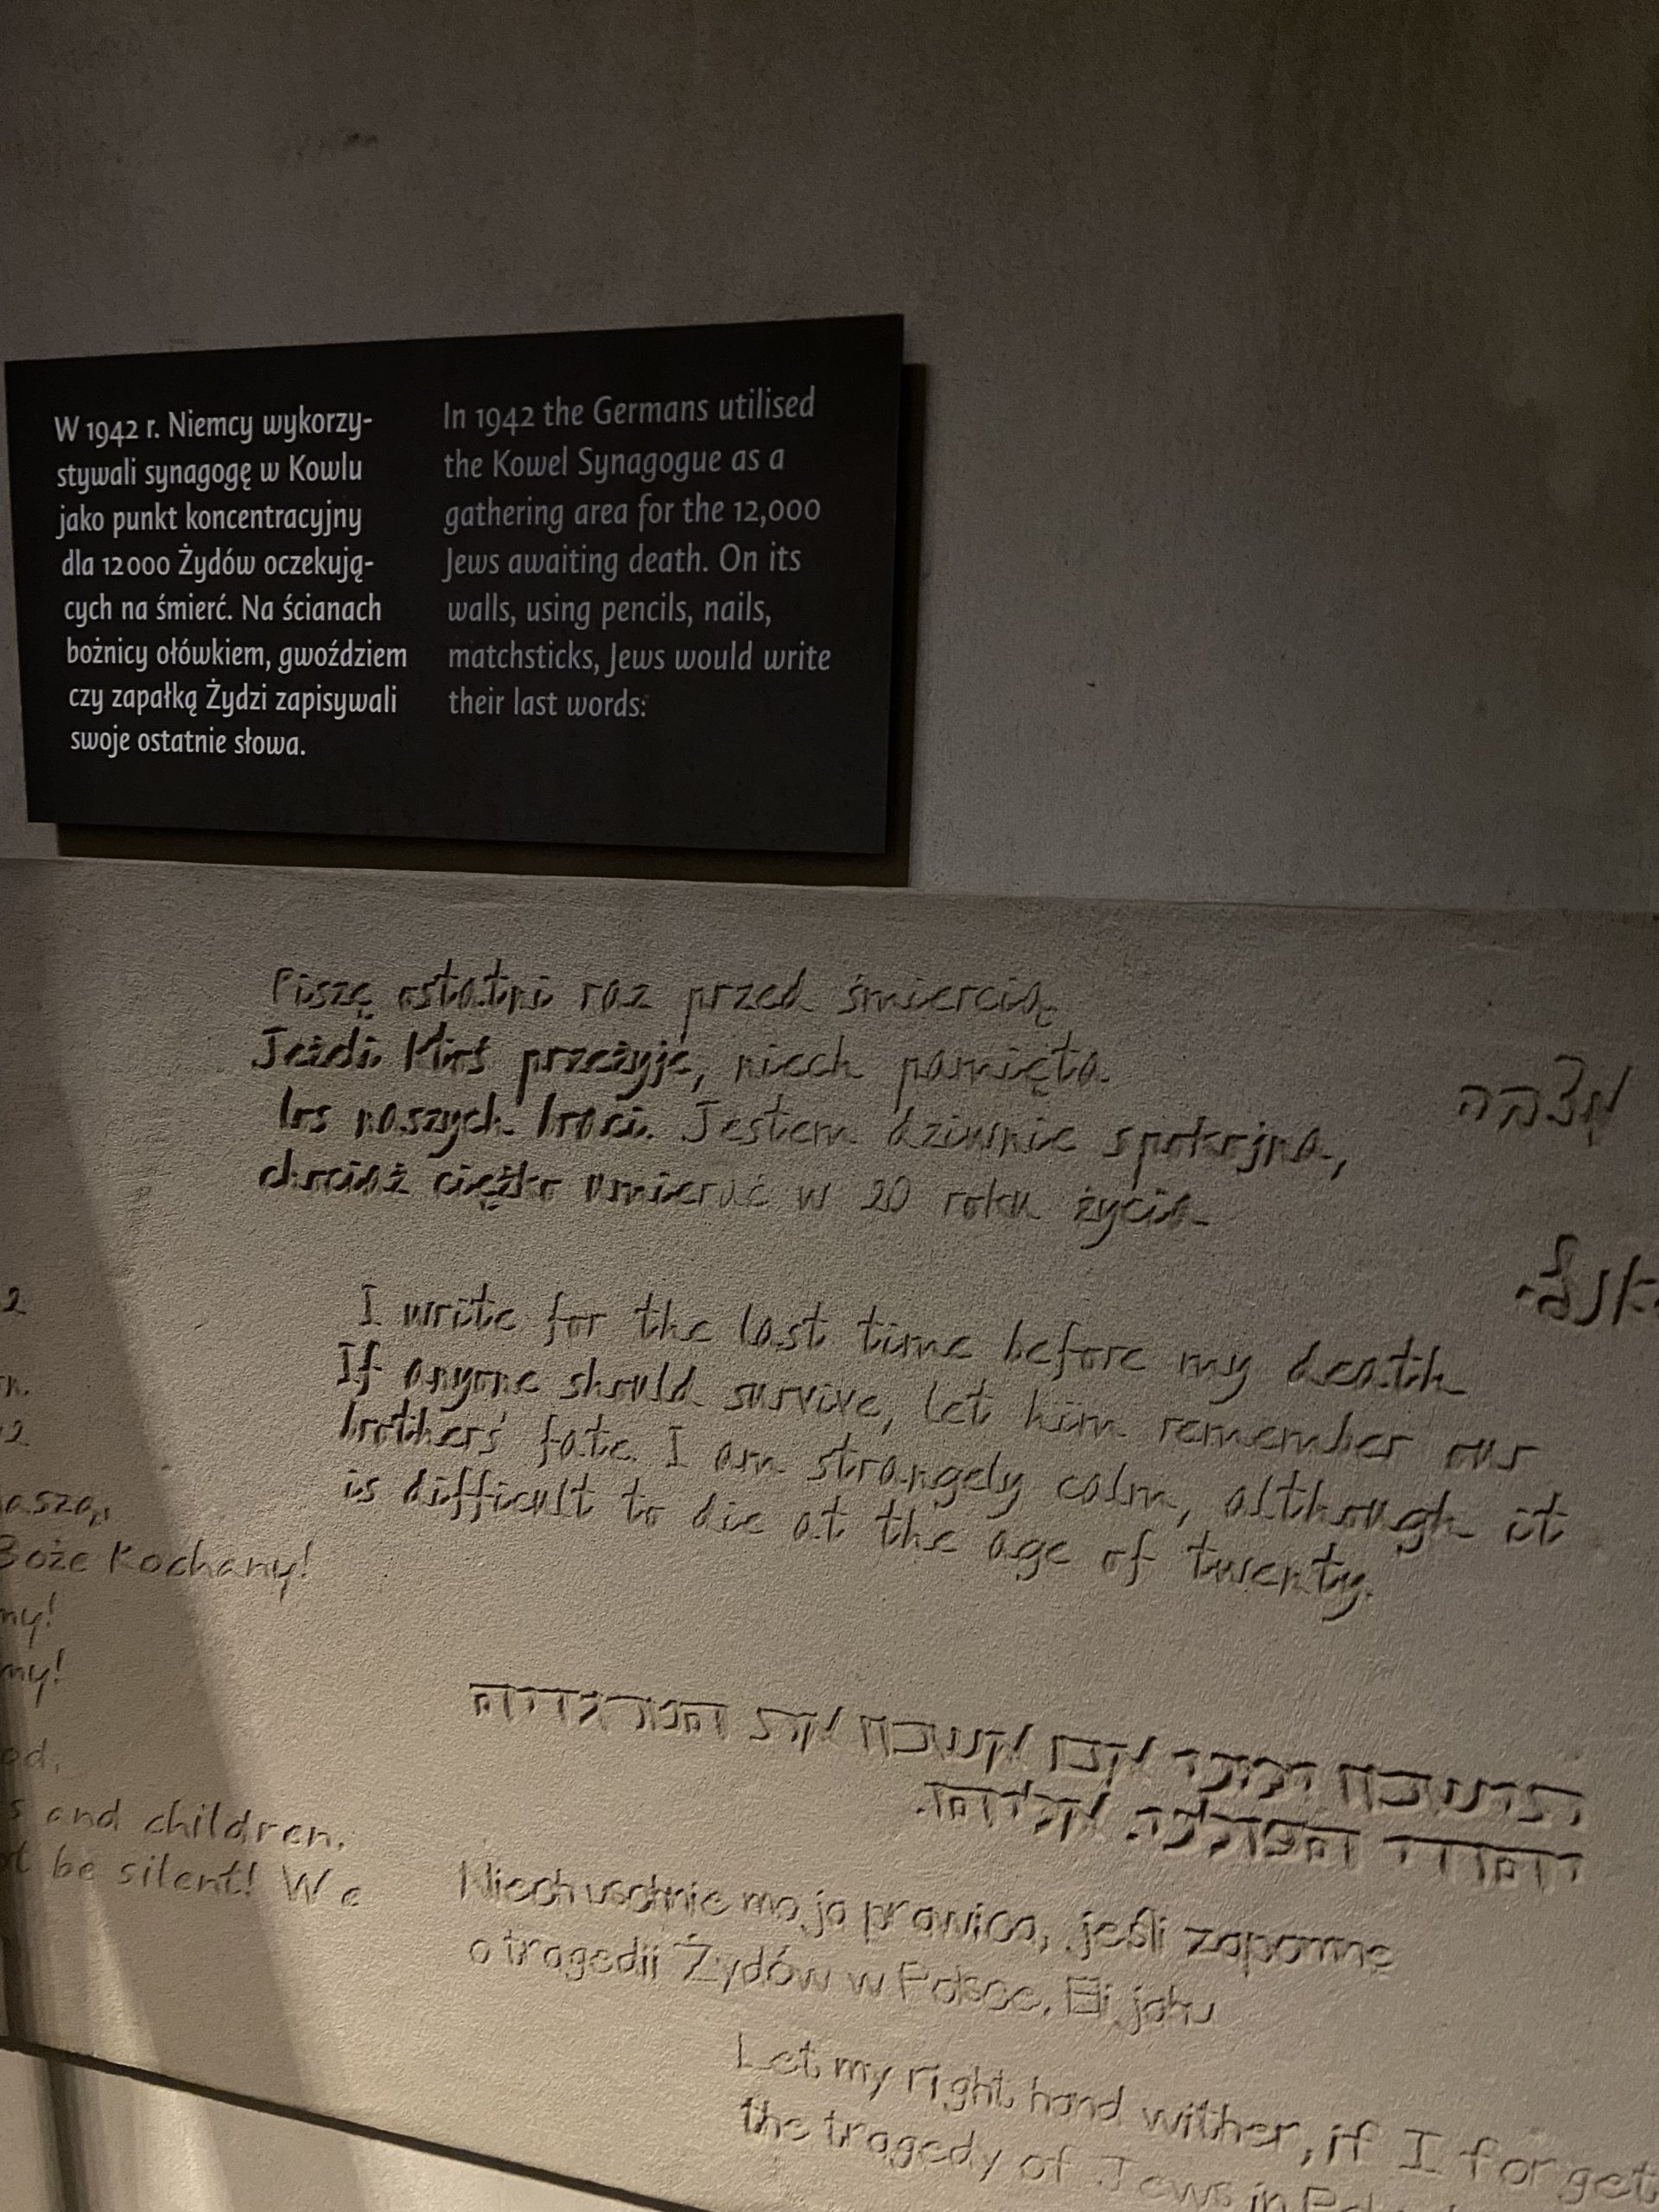 W 1942 r. Niemcy wykorzy-
stywali synagogę w Kowlu
jako punkt koncentracyjny
dla 12 000 Żydów oczekują-
cych na śmierć. Na ścianach
bożnicy ołówkiem, gwoździem
czy zapałką Żydzi zapisywali
swoje ostatnie słowa.
In 1942 the Germans utilised
the Kowel Synagogue as a
gathering area for the 12,000
Jews awaiting death. On its
walls, using pencils, nails,
matchsticks, Jews would write
their last words:
Piszę ostatni raz przed śmiercią
Jeżeli ktoś przeżyje, niech pamięta
los naszych braci. Jestem dziwnie spokojna,
chociaż ciężko umierać w 20 roku życia
I write for the last time before my death
If anyone should survive, let him remember our
brothers' fate. I am strangely calm, although it
is difficult to die at the age of twenty.
Boże kochany!
my!
my!
s and children.
be silent! We
Niech uschnie moja prawica, jeśli zapomnę
o tragedii Żydów w Polsce, Eli jahu
Let my right hand wither, if I forget
the tragedy of Jews in